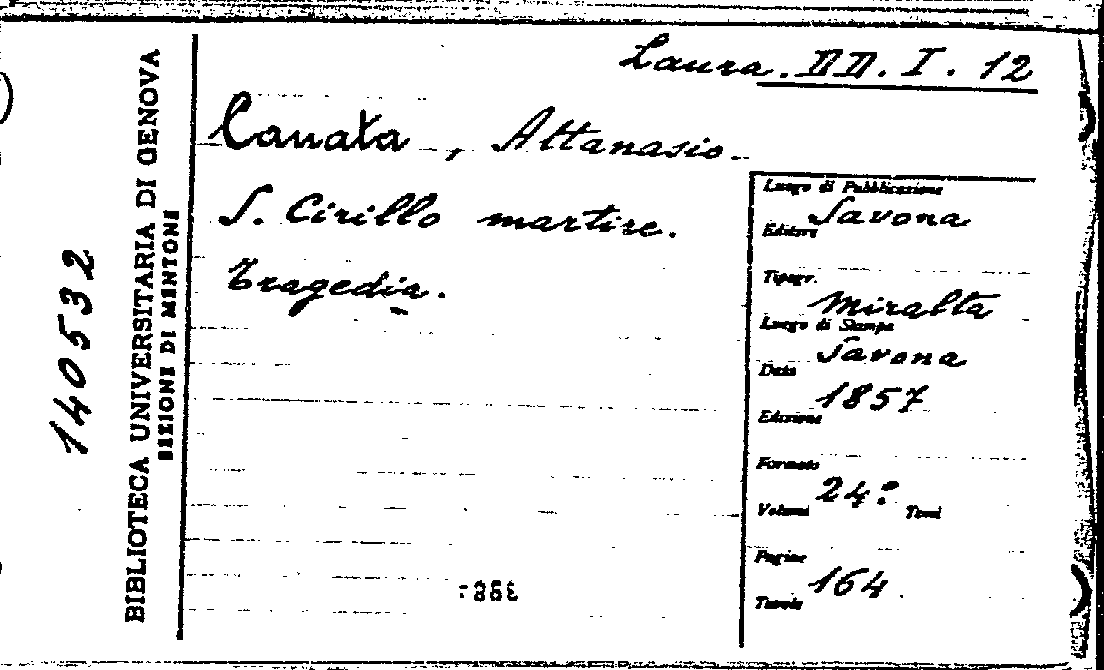 Laura. DD. I. 12
Canata, Attanasio.
S. Cirillo martire.
Tragedia.
Luogo di Pubblicazione
Savona
Editore
Tipogr.
Miralta
Luogo di Stampa
Savona
Data
1857
Edizione
Formato
24º
Volumi Tomi
Pagine
164
Tavole
BIBLIOTECA UNIVERSITARIA DI GENOVA
SEZIONE DI MENTONE
140532